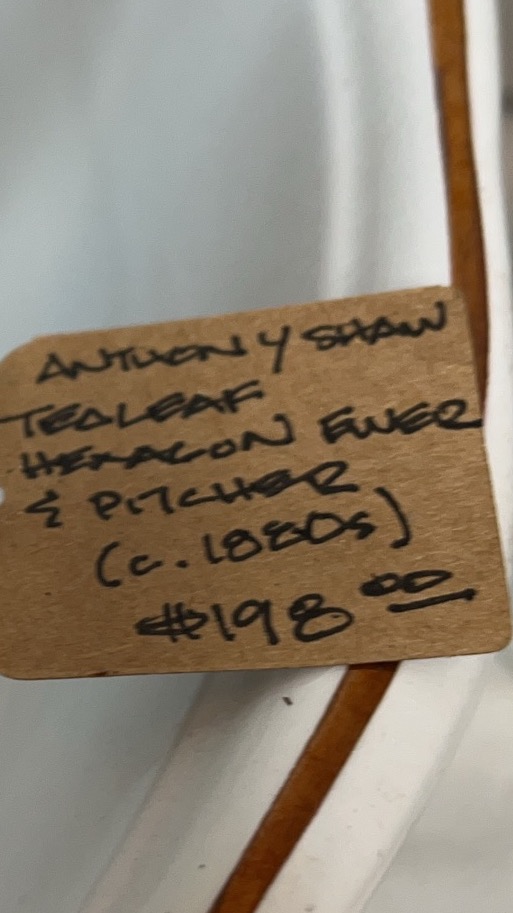 ANTHONY SHAW
TEALEAF
HEXAGON EWER
& PITCHER
(c. 1880s)
$198.00